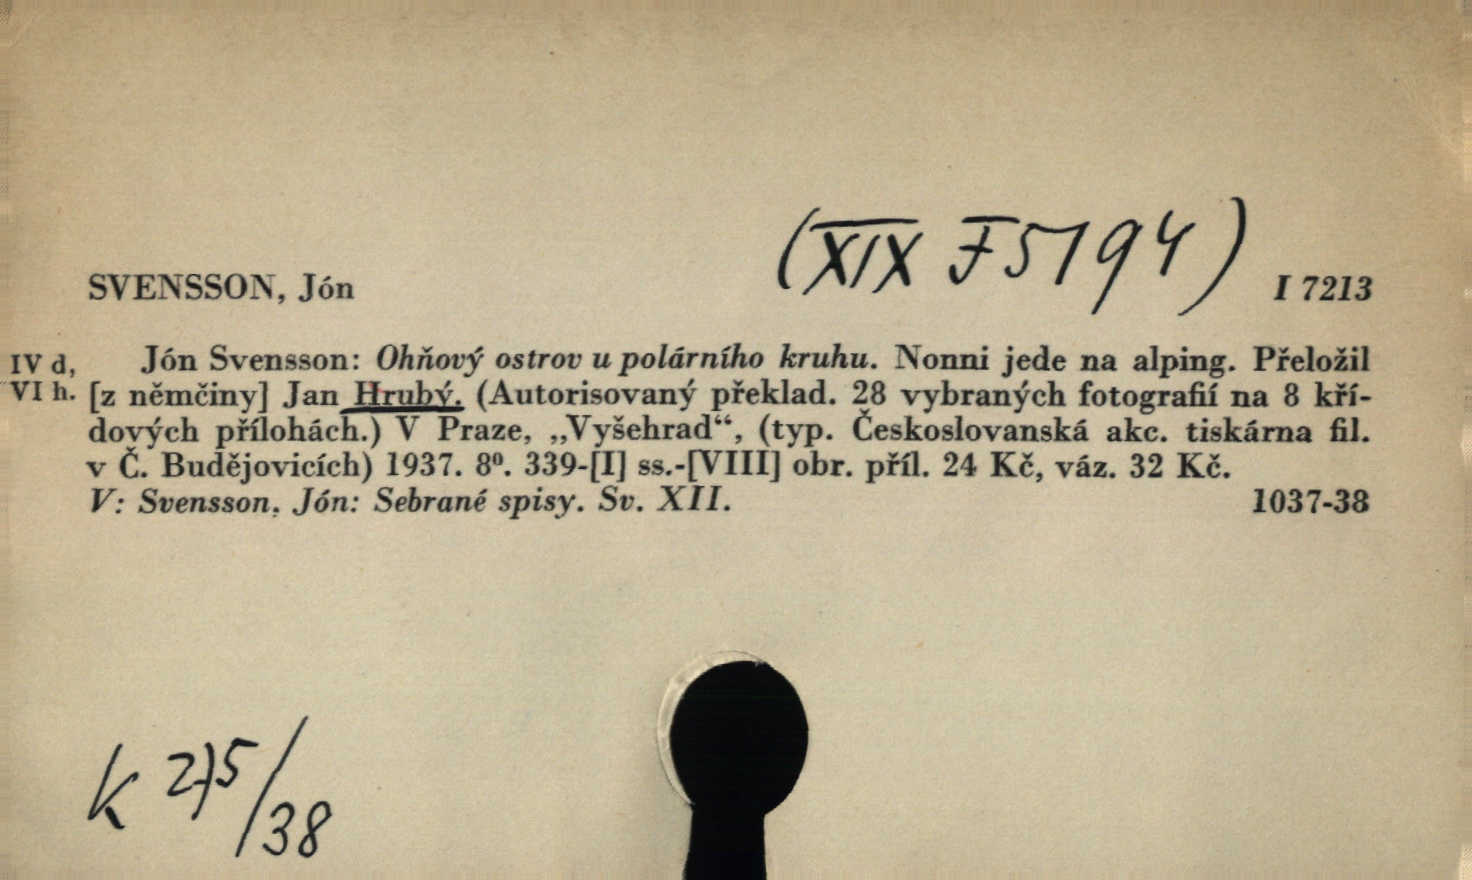 (XIX F 5194)
SVENSSON, Jón I 7213
IV d, Jón Svensson: Ohňový ostrov u polárního kruhu. Nonni jede na alping. Přeložil
VI h. [z němčiny] Jan Hrubý. (Autorisovaný překlad. 28 vybraných fotografií na 8 kří-
dových přílohách.) V Praze, „Vyšehrad“, (typ. Českoslovanská akc. tiskárna fil.
v Č. Budějovicích) 1937. 8⁰. 339-[I] ss.-[VIII] obr. příl. 24 Kč, váz. 32 Kč.
V: Svensson, Jón: Sebrané spisy. Sv. XII. 1037-38
K 275/38